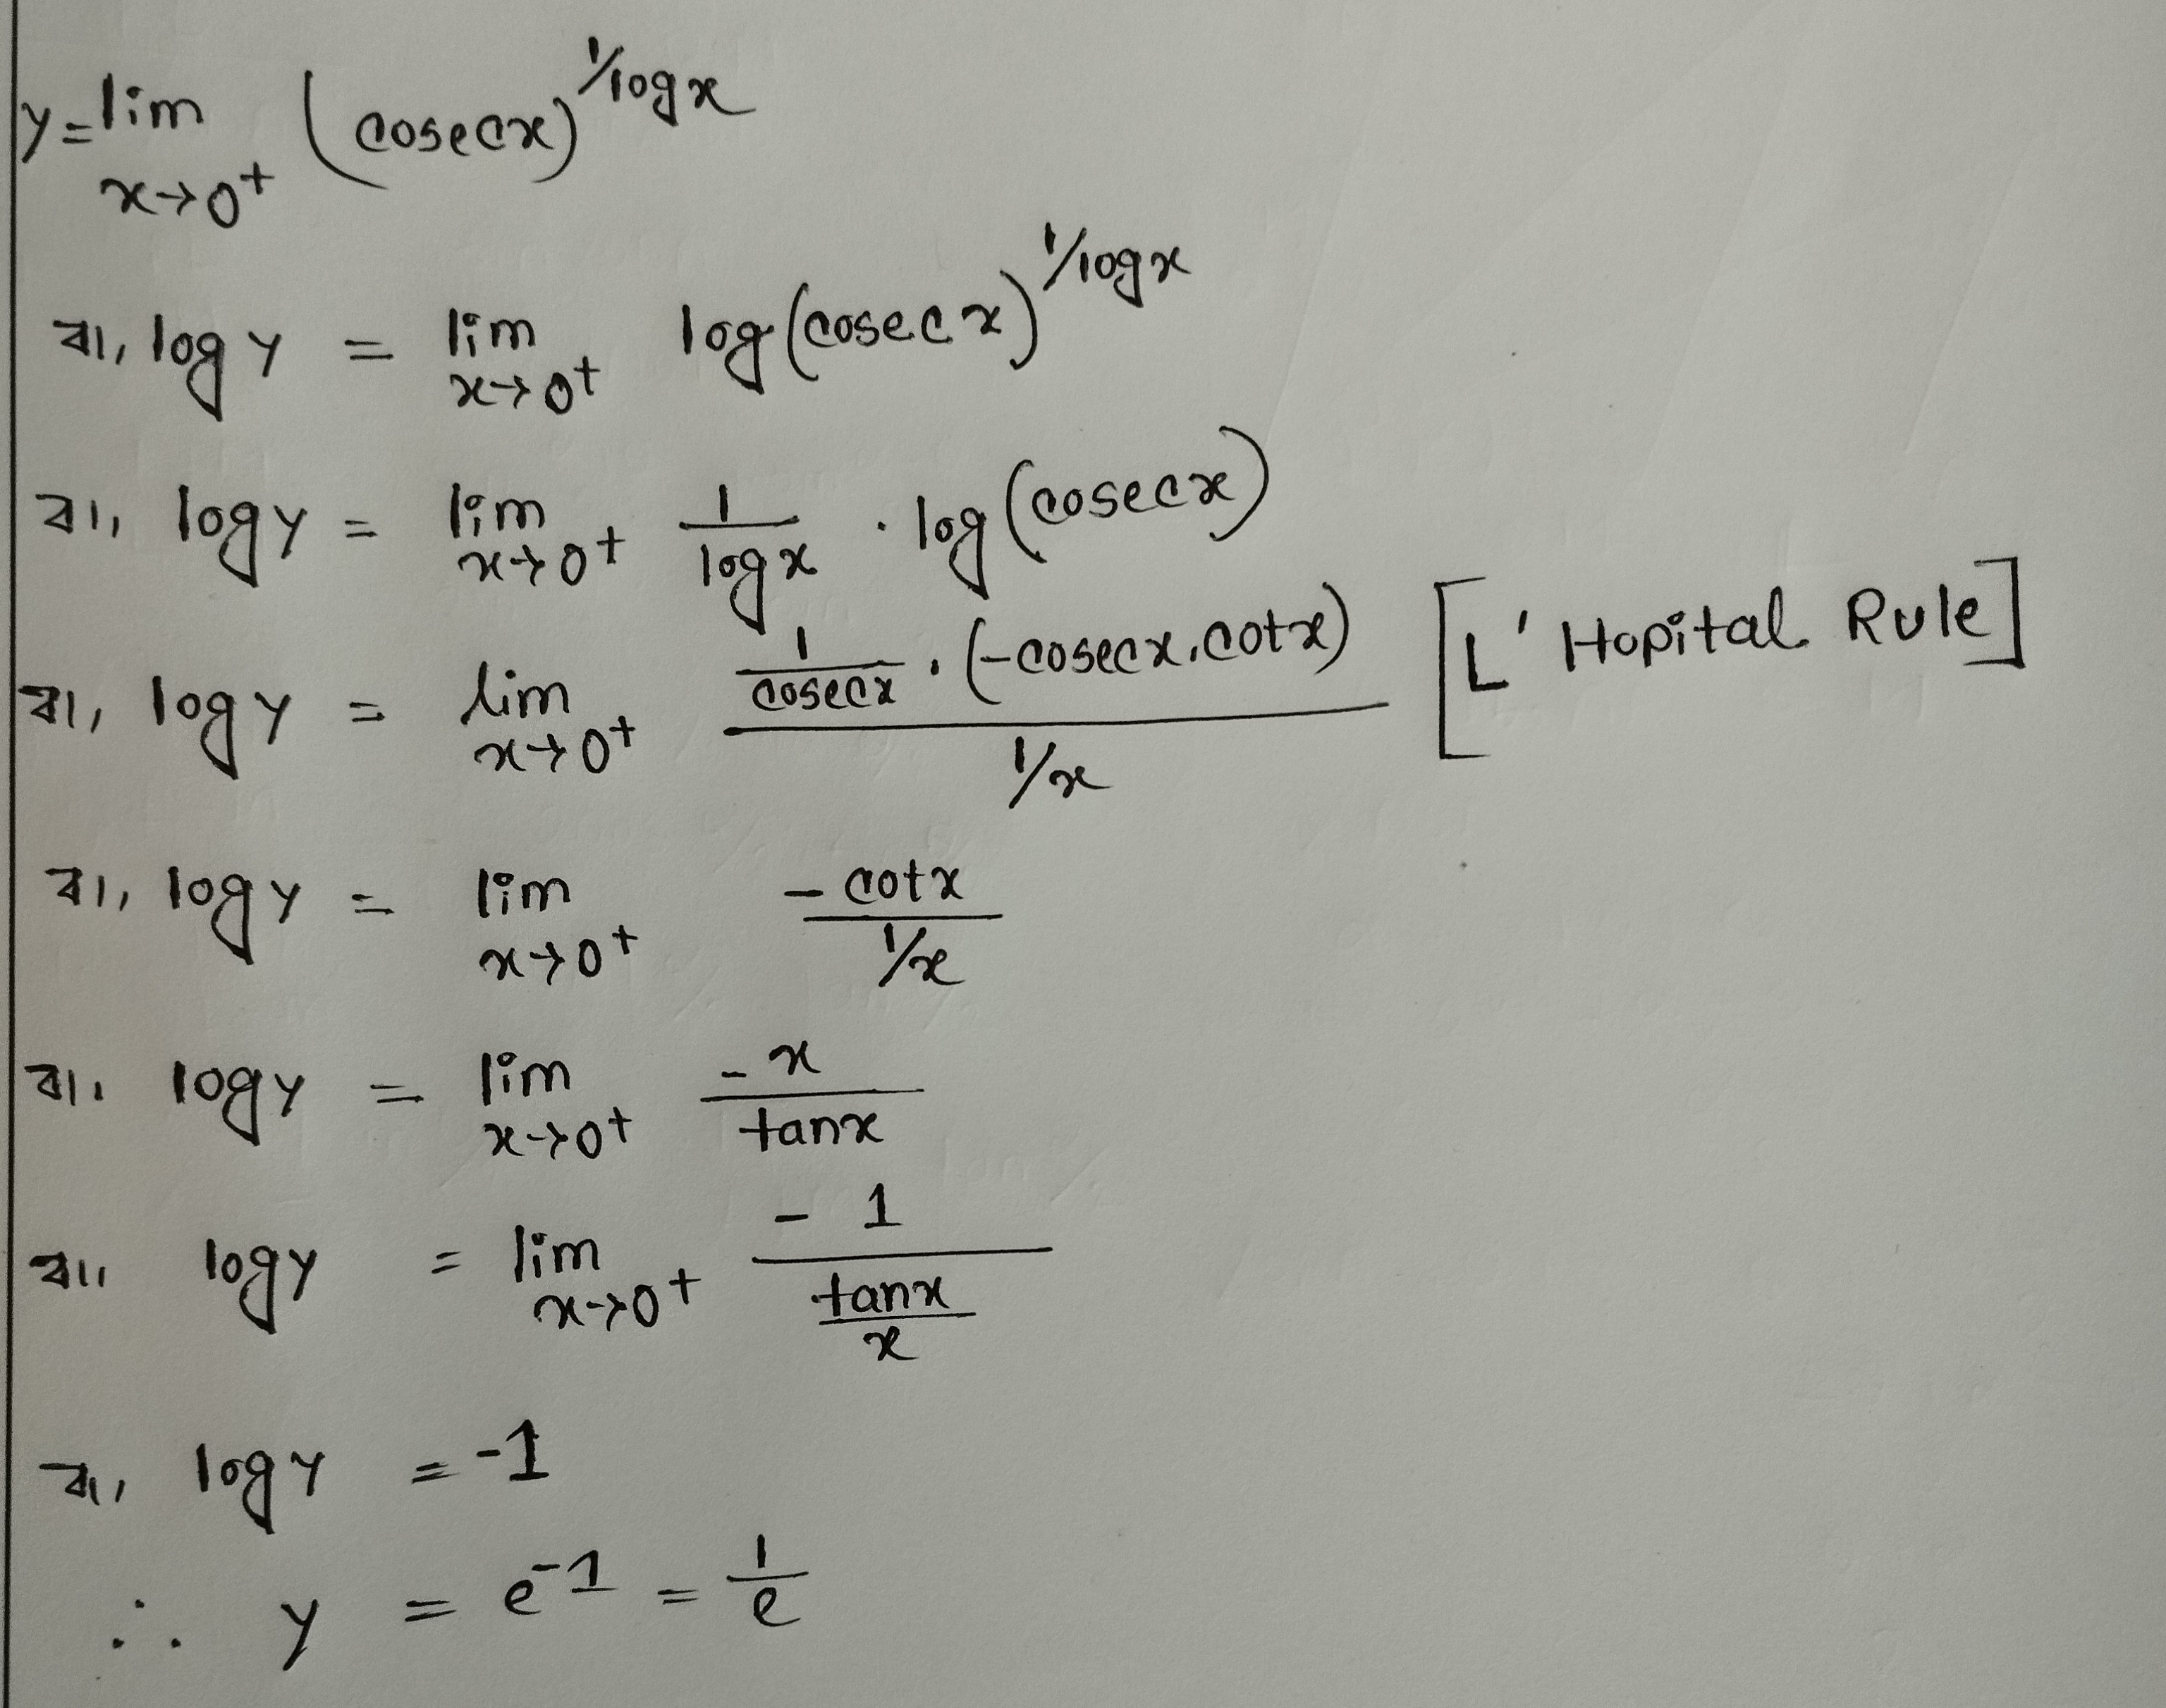 y = lim x→0+ (cosecx)^1/logx
বা, log y = lim x→0+ log(cosec x)^1/logx
বা, log y = lim x→0+ 1/logx · log(cosecx)
বা, log y = lim x→0+ (1/cosecx · (-cosecx.cotx))/(1/x) [L' Hopital Rule]
বা, log y = lim x→0+ -cotx/(1/x)
বা, log y = lim x→0+ -x/tanx
বা, log y = lim x→0+ -1/(tanx/x)
বা, log y = -1
∴ y = e^-1 = 1/e